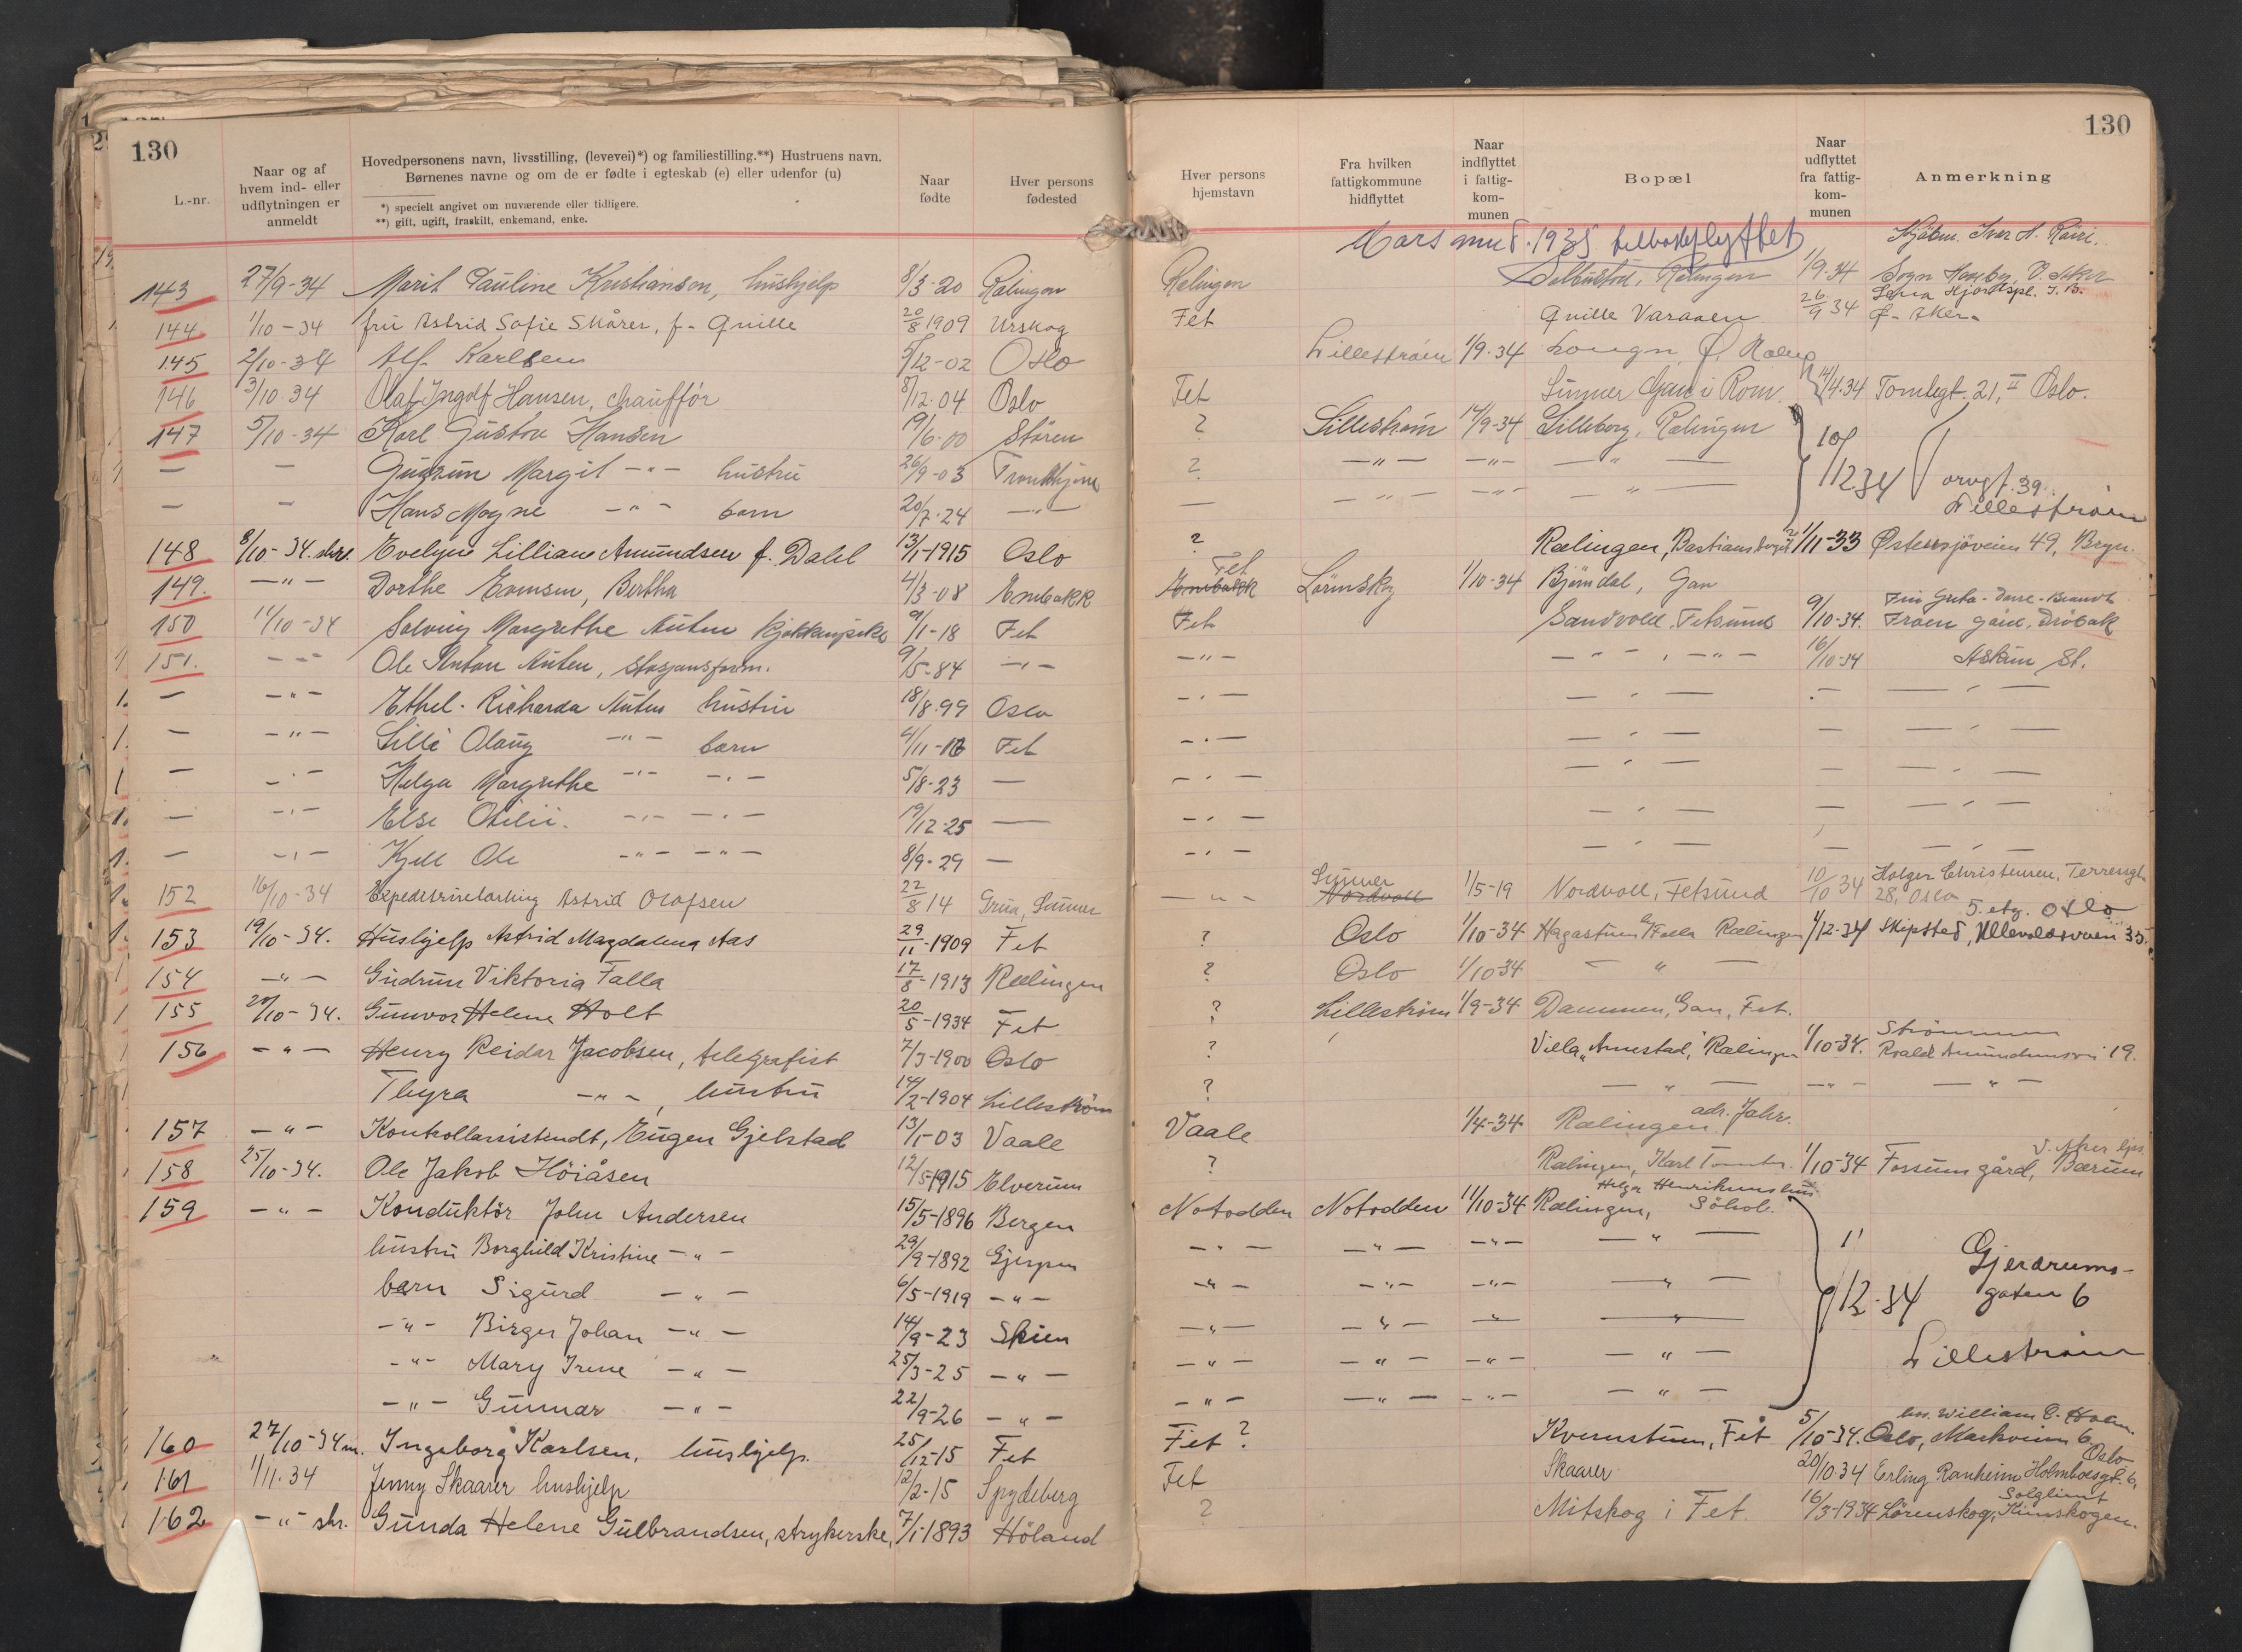 130
L.-nr.
Naar og af hvem ind- eller udflytningen er anmeldt
Hovedpersonens navn, livsstilling, (levevei)*) og familiestilling.**) Hustruens navn.
Børnenes navne og om de er fødte i egteskab (e) eller udenfor (u)
*) specielt angivet om nuværende eller tidligere.
**) gift, ugift, fraskilt, enkemand, enke.
Naar fødte
Hver persons fødested
Hver persons hjemstavn
Fra hvilken fattigkommune hidflyttet
Naar indflyttet i fattig-kom-munen
Bopæl
Naar udflyttet fra fattig-kom-munen
Anmerkning
130
Mars mnd. 1935 tilbakeflyttet
143 27/9-34 Marit Pauline Kristiansen, hushjelp 8/3-20 Rælingen Rælingen Rælingen 1/9-34 Sogn V. Aker
144 1/10-34 fru Astrid Sofie Skårer, f. Qville 20/8 1909 Urskog Fet Qville Varaaen 26/9 34 Ø. Aker
145 2/10-34 Alf Karlsen 5/12-02 Oslo Lillestrøm 1/9-34 Ø. Ræling
146 3/10-34 Olaf Ingolf Hansen, chauffør 8/12-04 Oslo Fet i Rom. 14/4.34 Tomtegt. 21, II Oslo.
147 5/10-34 Karl Gustav Hansen 19/6-00 Støren ? Lillestrøm 14/9-34 Lilleborg, Rælingen
— — Gudrun Margit -"- hustru 26/9-03 Trondhjem ? -"- -"- -"- 10/12 34 39
— — Hans Magne -"- barn 20/7-24 -"- — -"- -"- -"- Lillestrøm
148 8/10-34. skr. Evelyne Lilliane Amundsen f. Dahl 13/1-1915 Oslo ? Rælingen, Bastiansberget 1/11-33 Østensjøveien 49, Bryn.
149. -"- Dorthe Evensen, Bertha 4/3-08 Enebakk Enebakk Fet Lørenskog 1/10-34 Bjørndal, Gan
150 11/10-34 Solveig Margrethe Auten kjøkkenpike 9/1-18 Fet Fet Sandvold, Fetsund 9/10-34. Froen gård, Drøbak
151. -"- Ole Anton Auten, stasjonsform. 9/5-84 -"- -"- -"- , -"- 16/10-34 Askim St.
— -"- Ethel Richarda Auten hustru 18/8.99 Oslo -"- -"- — -"-
— -"- Lilli Olaug -"- barn 4/11-16 Fet -"- -"- — -"-
— -"- Helga Margrethe -"- -"- 5/8-23 — -"- -"- — -"-
— -"- Else Otilie. -"- -"- 19/12-25 — -"- -"- — -"-
— -"- Kjell Ole -"- -"- 8/9-29 — -"- -"- -"-
152 16/10-34 Expeditricelærling Astrid Olafsen 22/8 14 Grua, Lunner -"- Lunner Nordvoll 1/5-19 Nordvoll, Fetsund 10/10 34 Holger Christensen, Terrengt. 28, Oslo
153 19/10-34. Hushjelp Astrid Magdalena Aas 29/11-1909 Fet ? Oslo 1/10-34 Hagastuen Falla Rælingen 1/12-34 Skipsted, Ullevoldsveien 35. 5. etg. Oslo
154 -"- Gudrun Viktoria Falla 17/8-1913 Rælingen ? Oslo 1/10-34 -"-
155 20/10-34. Gunvor Helene Holt 20/5-1934 Fet ? Lillestrøm 1/9-34 Dammen, Gan, Fet.
156 -"- Henry Reidar Jacobsen, telegrafist 7/3-1900 Oslo ? Villa "Arnestad", Rælingen 1/10-34. Strømmen Roald Amundsensvei 19.
Thyra -"-, hustru 14/2-1904 Lillestrøm ? -"- -"- -"-
157 -"- Kontrollassistendt, Eugen Gjelstad 13/1-03 Vaale Vaale 1/4-34 Rælingen adr. Jahr.
158 25/10-34. Ole Jakob Höiåsen 12/5-1915 Elverum ? Rælingen, Karl 1/10-34 Fossum gård, Bærum
159 -"- Konduktör John Andersen 15/5-1896 Bergen Notodden Notodden 11/10-34 Rælingen, Helga Henriksens hus
hustru Borghild Kristine -"- 29/9-1892 Gjerpen -"- -"- -"- -"-
barn Sigurd -"- 6/5-1919 -"- -"- -"- -"- -"- 1/12-34 Gjerdrumsgaten 6
-"- Birger Johan -"- 14/9-23 Skien -"- -"- -"- -"- Lillestrøm
-"- Mary Irene -"- 25/3-25 -"- -"- -"- -"- -"-
-"- Gunnar -"- 22/9-26 -"- -"- -"- -"- -"-
160 27/10-34 m. Ingeborg Karlsen, hushjelp. 25/12-15 Fet Fet ? Kvernstuen, Fet 5/10-34. hos. William C. Holm. Oslo, Markveien 6
161 1/11.34 Jenny Skaarer hushjelp 12/2-15 Spydeberg Fet Skaarer 20/10.34 Erling Ranheim Holmboesgt. 6, Oslo
162 -"- skr. Gunda Helene Gulbrandsen, strykerske, 7/1-1893 Höland ? Mitskog i Fet 16/3-1934 Lörenskog, Solglimt Kurskogen.